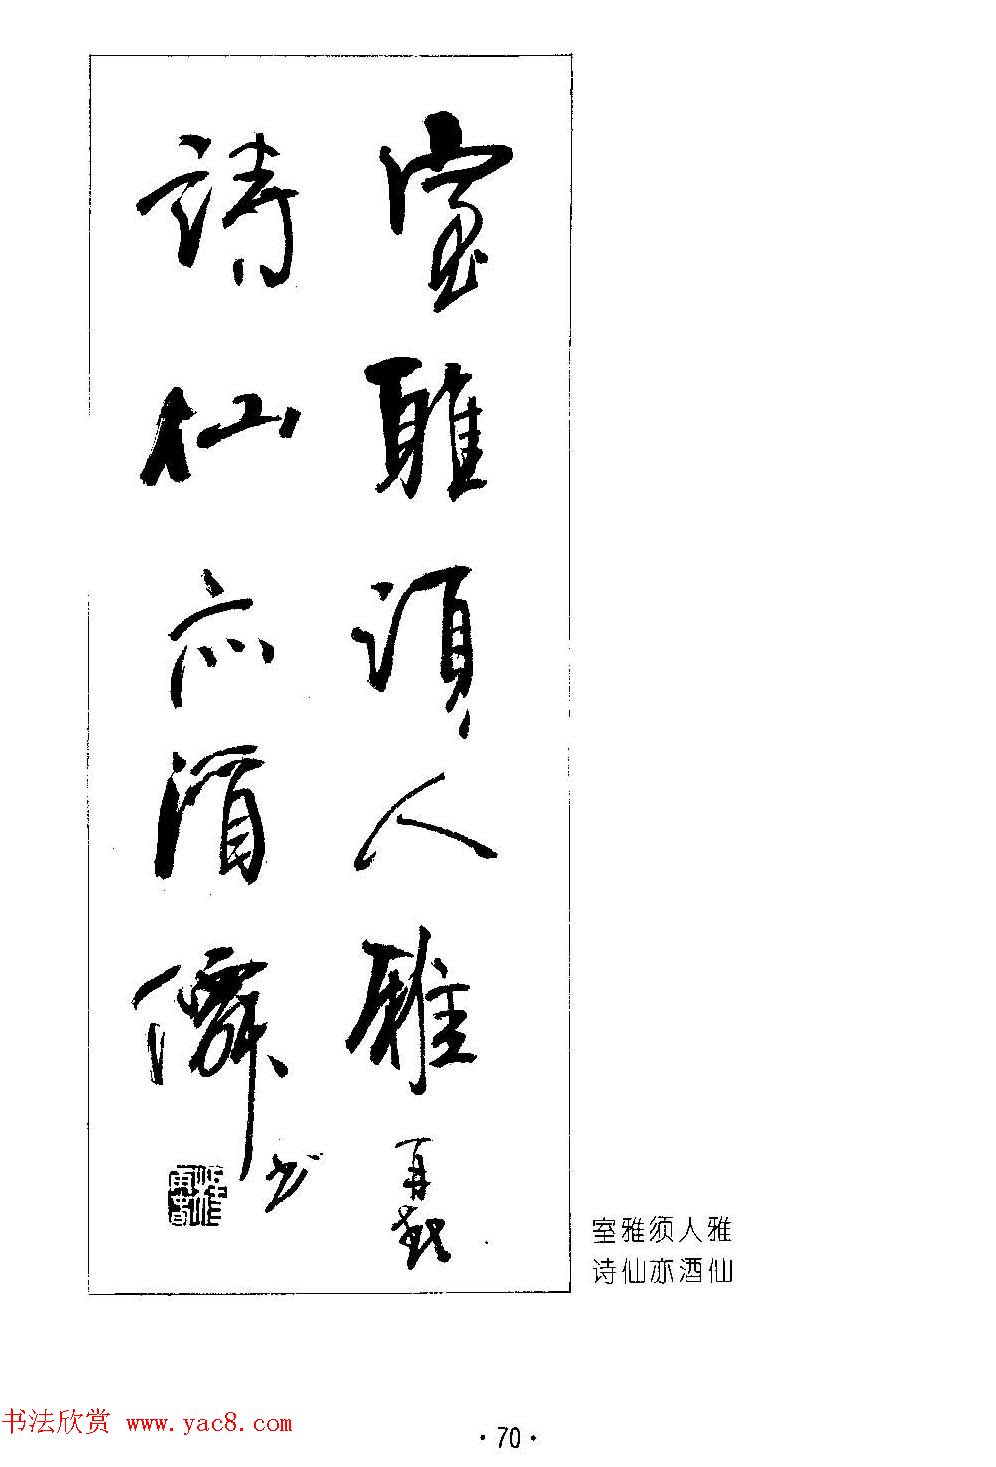 室雅須人雅
詩仙亦酒僊
书
室雅须人雅
诗仙亦酒仙
书法欣赏 www.yac8.com
·70·